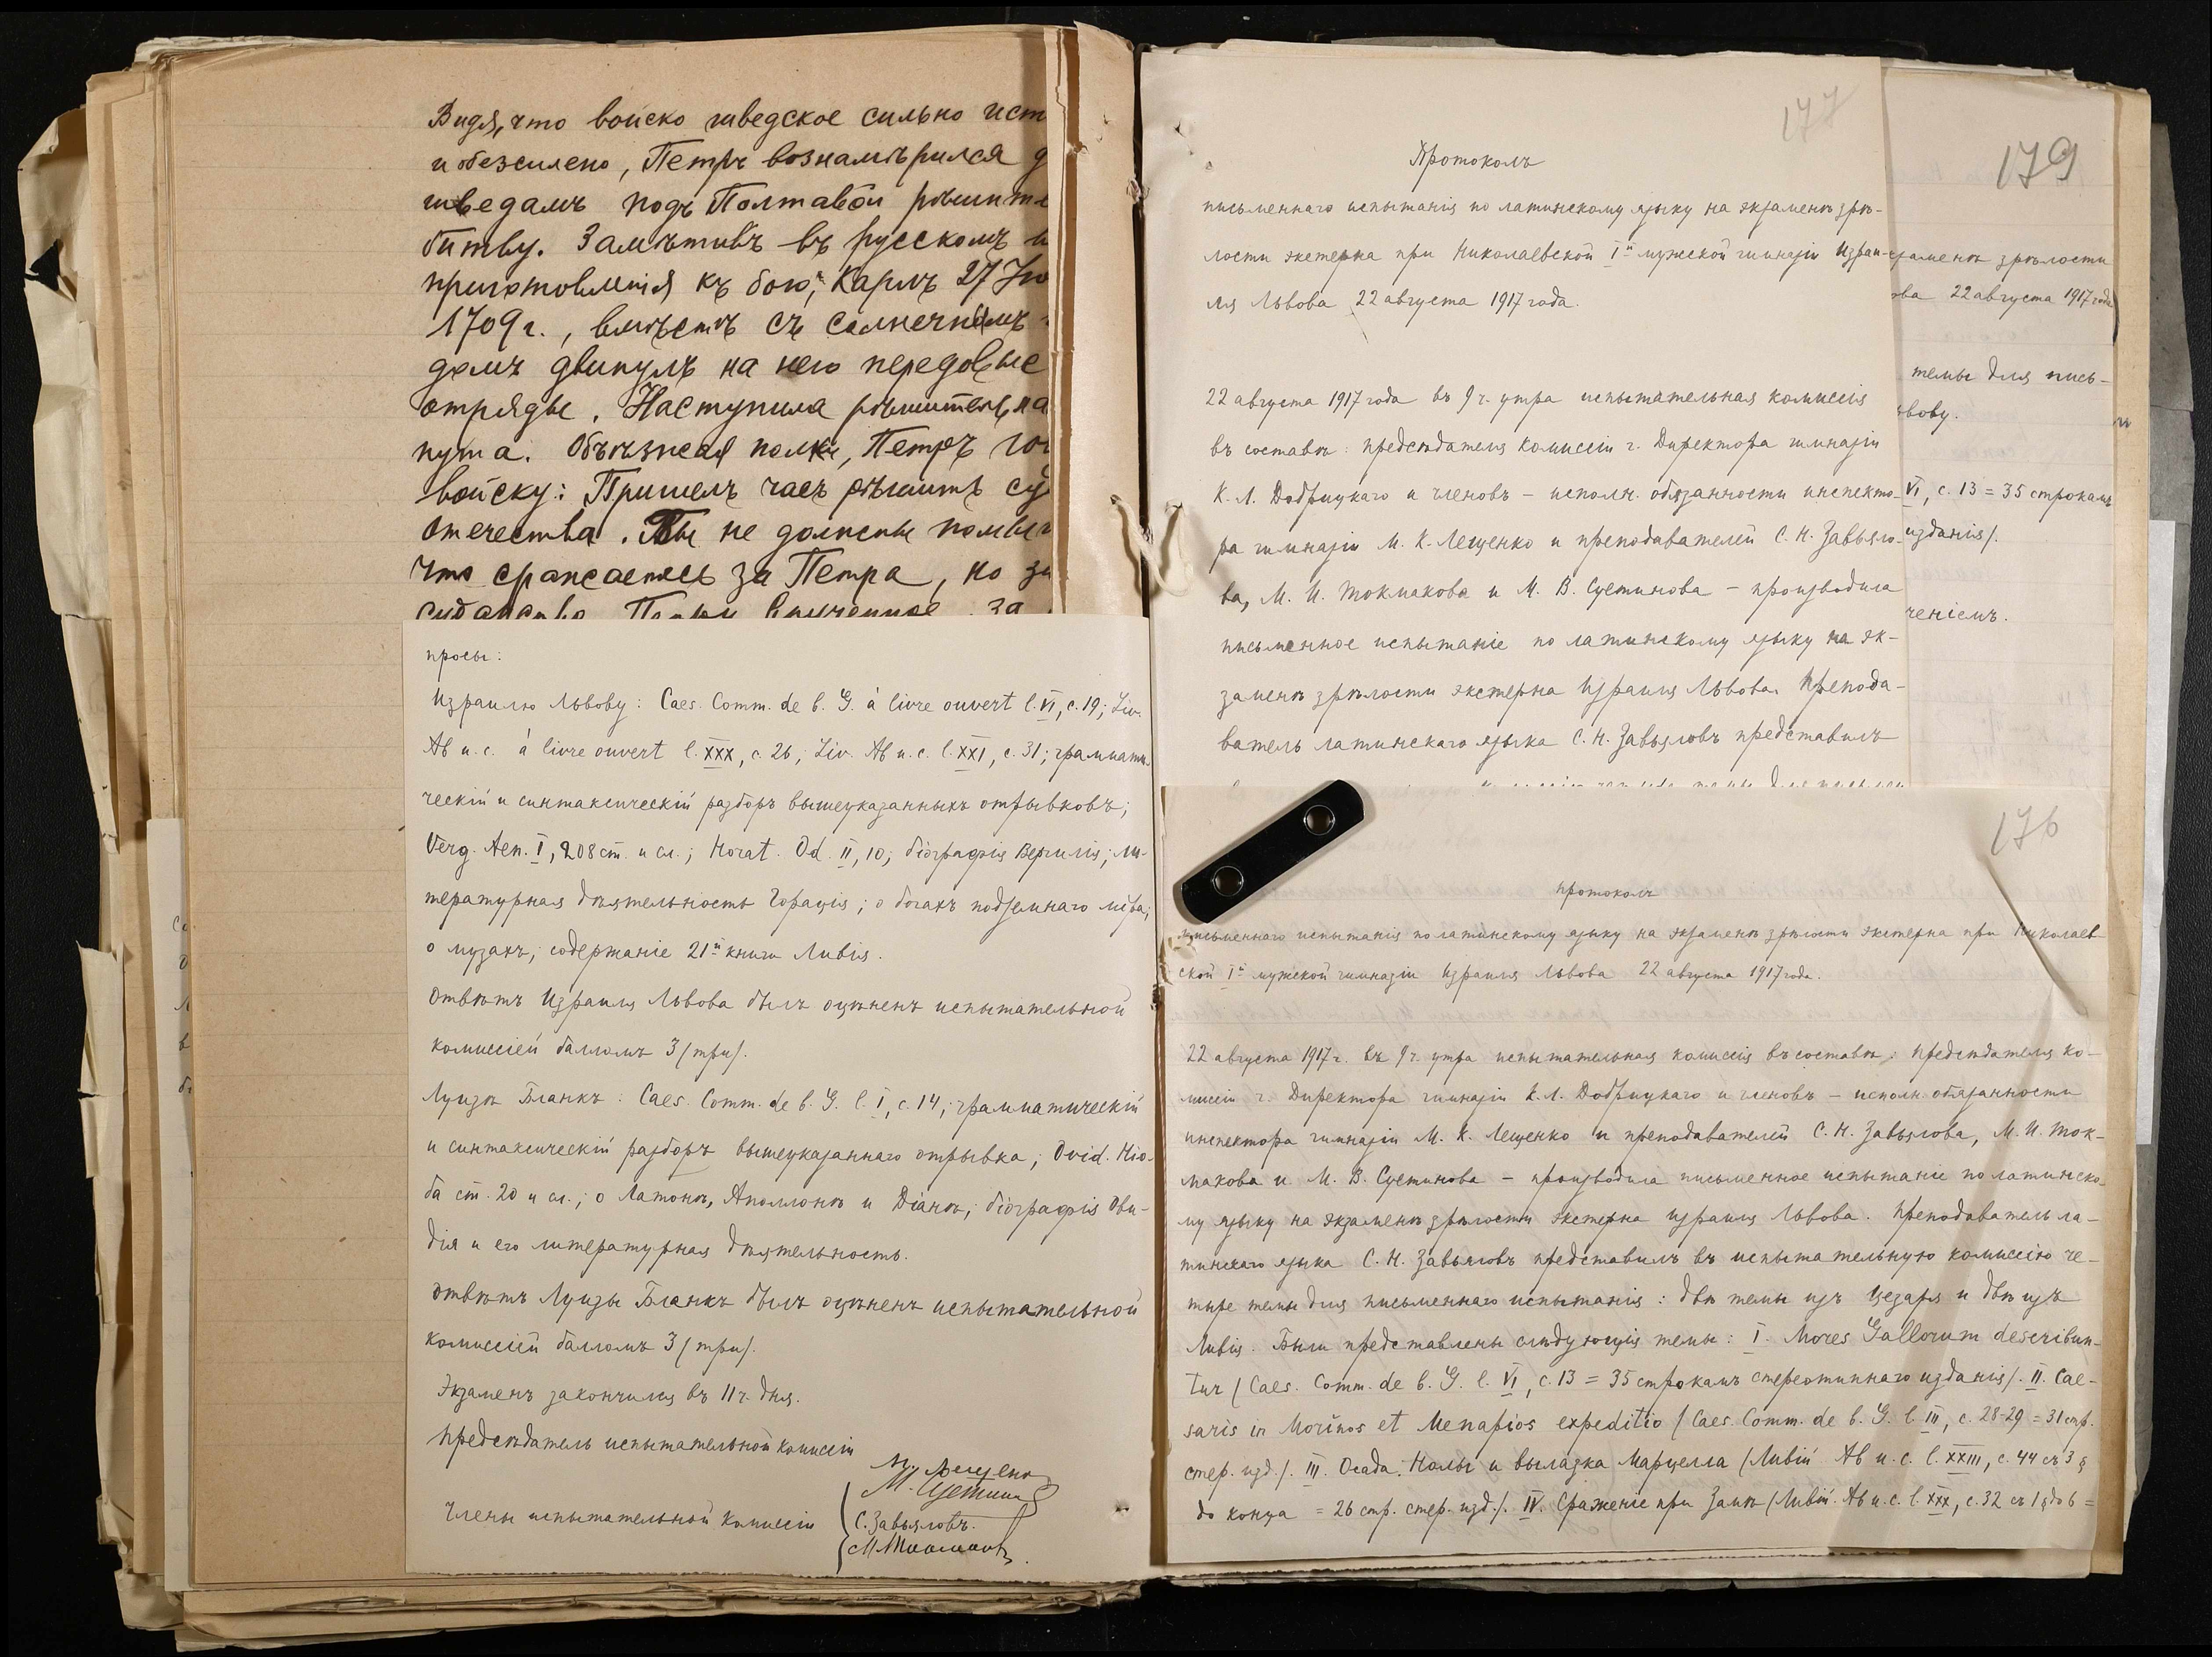 Видя, что войско шведское сильно ист
и обезсилено, Петръ вознамѣрился д
шведамъ подъ Полтавой рѣшите
битву. Замѣтивъ въ русскомъ
приготовленія къ бою, Карлъ 27 Ію
1709 г., вмѣстѣ съ солнечнымъ
домъ двинулъ на него передовые
отряды. Наступила рѣшительна
нута. Объѣзжая полки, Петръ го
войску: Пришелъ часъ рѣшить су
отечества. Вы не должны помы
что сражаетесь за Петра, но за
Петру врученное за
просы:
Израилю Львову: Caes. Comm. de b. G. à livre ouvert l. VI, c. 19; Liv.
Ab u. c. à livre ouvert l. XXX, c. 26; Liv. Ab u. c. l. XXI, c. 31; граммати-
ческій и синтаксическій разборъ вышеуказанныхъ отрывковъ;
Verg. Aen. I, 208 ст. и сл.; Horat. Od. II, 10; біографія Вергилія; ли-
тературная дѣятельность Горація; о богахъ подземнаго міра;
о музахъ; содержаніе 21й книги Ливія.
Отвѣтъ Израиля Львова былъ оцѣненъ испытательной
комиссіей балломъ 3 /три/.
Луизѣ Бланкъ: Caes. Comm. de b. G. l. I, c. 14; грамматическій
и синтаксическій разборъ вышеуказаннаго отрывка; Ovid. Нio-
ба ст. 20 и сл.; о Латонѣ, Аполлонѣ и Діанѣ; біографія Ови-
дія и его литературная дѣятельность.
Отвѣтъ Луизы Бланкъ былъ оцѣненъ испытательной
комиссіей балломъ 3 /три/.
Экзаменъ закончился въ 11 ч. дня.
Предсѣдатель испытательной комиссіи
М. Лещенко
М. Суетинов
Члены испытательной комиссіи
С. Завьяловъ.
М. Токмаковъ.
177
Протоколъ
письменнаго испытанія по латинскому языку на экзаменѣ зрѣ-
лости экстерна при Николаевской Iй мужской гимназіи Израи-
ля Львова 22 августа 1917 года.
22 августа 1917 года въ 9 ч. утра испытательная комиссія
въ составѣ: предсѣдателя комиссіи г. Директора гимназіи
К. Л. Добрицкаго и членовъ – исполн. обязанности инспекто-
ра гимназіи М. К. Лещенко и преподавателей С. Н. Завьяло-
ва, М. И. Токмакова и М. В. Суетинова – производила
письменное испытаніе по латинскому языку на эк-
заменѣ зрѣлости экстерна Израиля Львова. Препода-
ватель латинскаго языка С. Н. Завьяловъ представилъ
179
экзаменѣ зрѣлости
ова 22 августа 1917 года
темы для пись-
ьвову.
VI, с. 13 = 35 строкамъ
изданія/.
ченіемъ.
176
Протоколъ
письменнаго испытанія по латинскому языку на экзаменѣ зрѣлости экстерна при Николаев-
ской Iй мужской гимназіи Израиля Львова 22 августа 1917 года.
22 августа 1917 г. въ 9 ч. утра испытательная комиссія въ составѣ: предсѣдателя ко-
миссіи г. Директора гимназіи К. Л. Добрицкаго и членовъ – исполн. обязанности
инспектора гимназіи М. К. Лещенко и преподавателей С. Н. Завьялова, М. И. Ток-
макова и М. В. Суетинова – производила письменное испытаніе по латинско-
му языку на экзаменѣ зрѣлости экстерна Израиля Львова. Преподаватель ла-
тинскаго языка С. Н. Завьяловъ представилъ въ испытательную комиссію че-
тыре темы для письменнаго испытанія: двѣ темы изъ Цезаря и двѣ изъ
Ливія. Были представлены слѣдующія темы: I. Mores Gallorum describun-
tur /Caes. Comm. de b. G. l. VI, c. 13 = 35 строкамъ стереотипнаго изданія/. II. Cae-
saris in Morinos et Menapios expeditio /Caes. Comm. de b. G. l. III, c. 28-29 = 31 стр.
стер. изд./. III. Осада Нолы и вылазка Марцелла /Ливій Ab u. c. l. XXIII, c. 44 съ 3 §
до конца = 26 стр. стер. изд./. IV. Сраженіе при Замѣ /Ливій. Ab u. c. l. XXX, c. 32 съ 1 § до 6 =